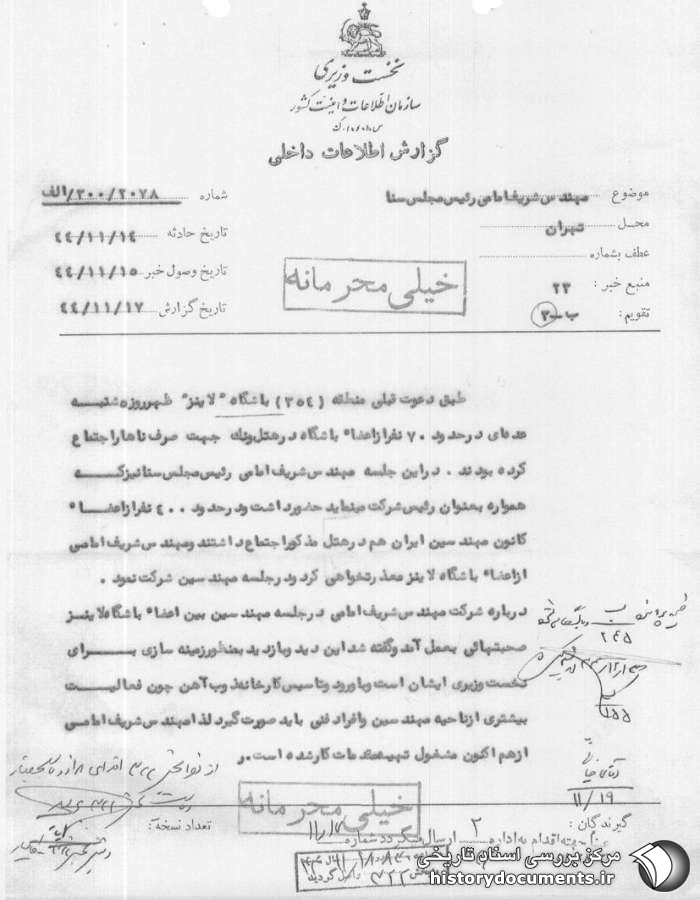 نخست وزیری
سازمان اطلاعات و امنیت کشور
گزارش اطلاعات داخلی
موضوع مهندس شریف امامی رئیس مجلس سنا
شماره ۳۰۰/۲۰۷۸/الف
محل تهران
تاریخ حادثه ۴۴/۱۱/۱۴
عطف بشماره
تاریخ وصول خبر ۴۴/۱۱/۱۵
منبع خبر : ۲۳
تاریخ گزارش ۴۴/۱۱/۱۷
تقویم : ب-۳
خیلی محرمانه
طبق دعوت قبلی منطقه (۳۵۴) باشگاه "لاینز" ظهر روز شنبه
عده‌ای در حدود ۷۰ نفر از اعضاء باشگاه در هتل ونک جهت صرف ناهار اجتماع
کرده بودند . در این جلسه مهندس شریف امامی رئیس مجلس سنا نیز که
همواره بعنوان رئیس شرکت مینماید حضور داشت و در حدود ۴۰۰ نفر از اعضاء
کانون مهندسین ایران هم در هتل مذکور اجتماع داشتند و مهندس شریف امامی
از اعضاء باشگاه لاینز معذرتخواهی کرد و در جلسه مهندسین شرکت نمود .
درباره شرکت مهندس شریف امامی در جلسه مهندسین بین اعضاء باشگاه لاینز
صحبتهائی بعمل آمد و گفته شد این دید و بازدید بمنظور زمینه سازی برای
نخست وزیری ایشان است و با ورود و تاسیس کارخانه ذوب آهن چون فعالیت
بیشتری از ناحیه مهندسین و افراد فنی باید صورت گیرد لذا مهندس شریف امامی
از هم اکنون مشغول تهیه مقدمات کار شده است. ر
۲۴۵
۱۵۵
۱۱/۱۹
خیلی محرمانه
گیرندگان :
تعداد نسخه :
جهته اقدام به اداره ۲ ارسال میگردد شماره
مرکز بررسی اسناد تاریخی
historydocuments.ir